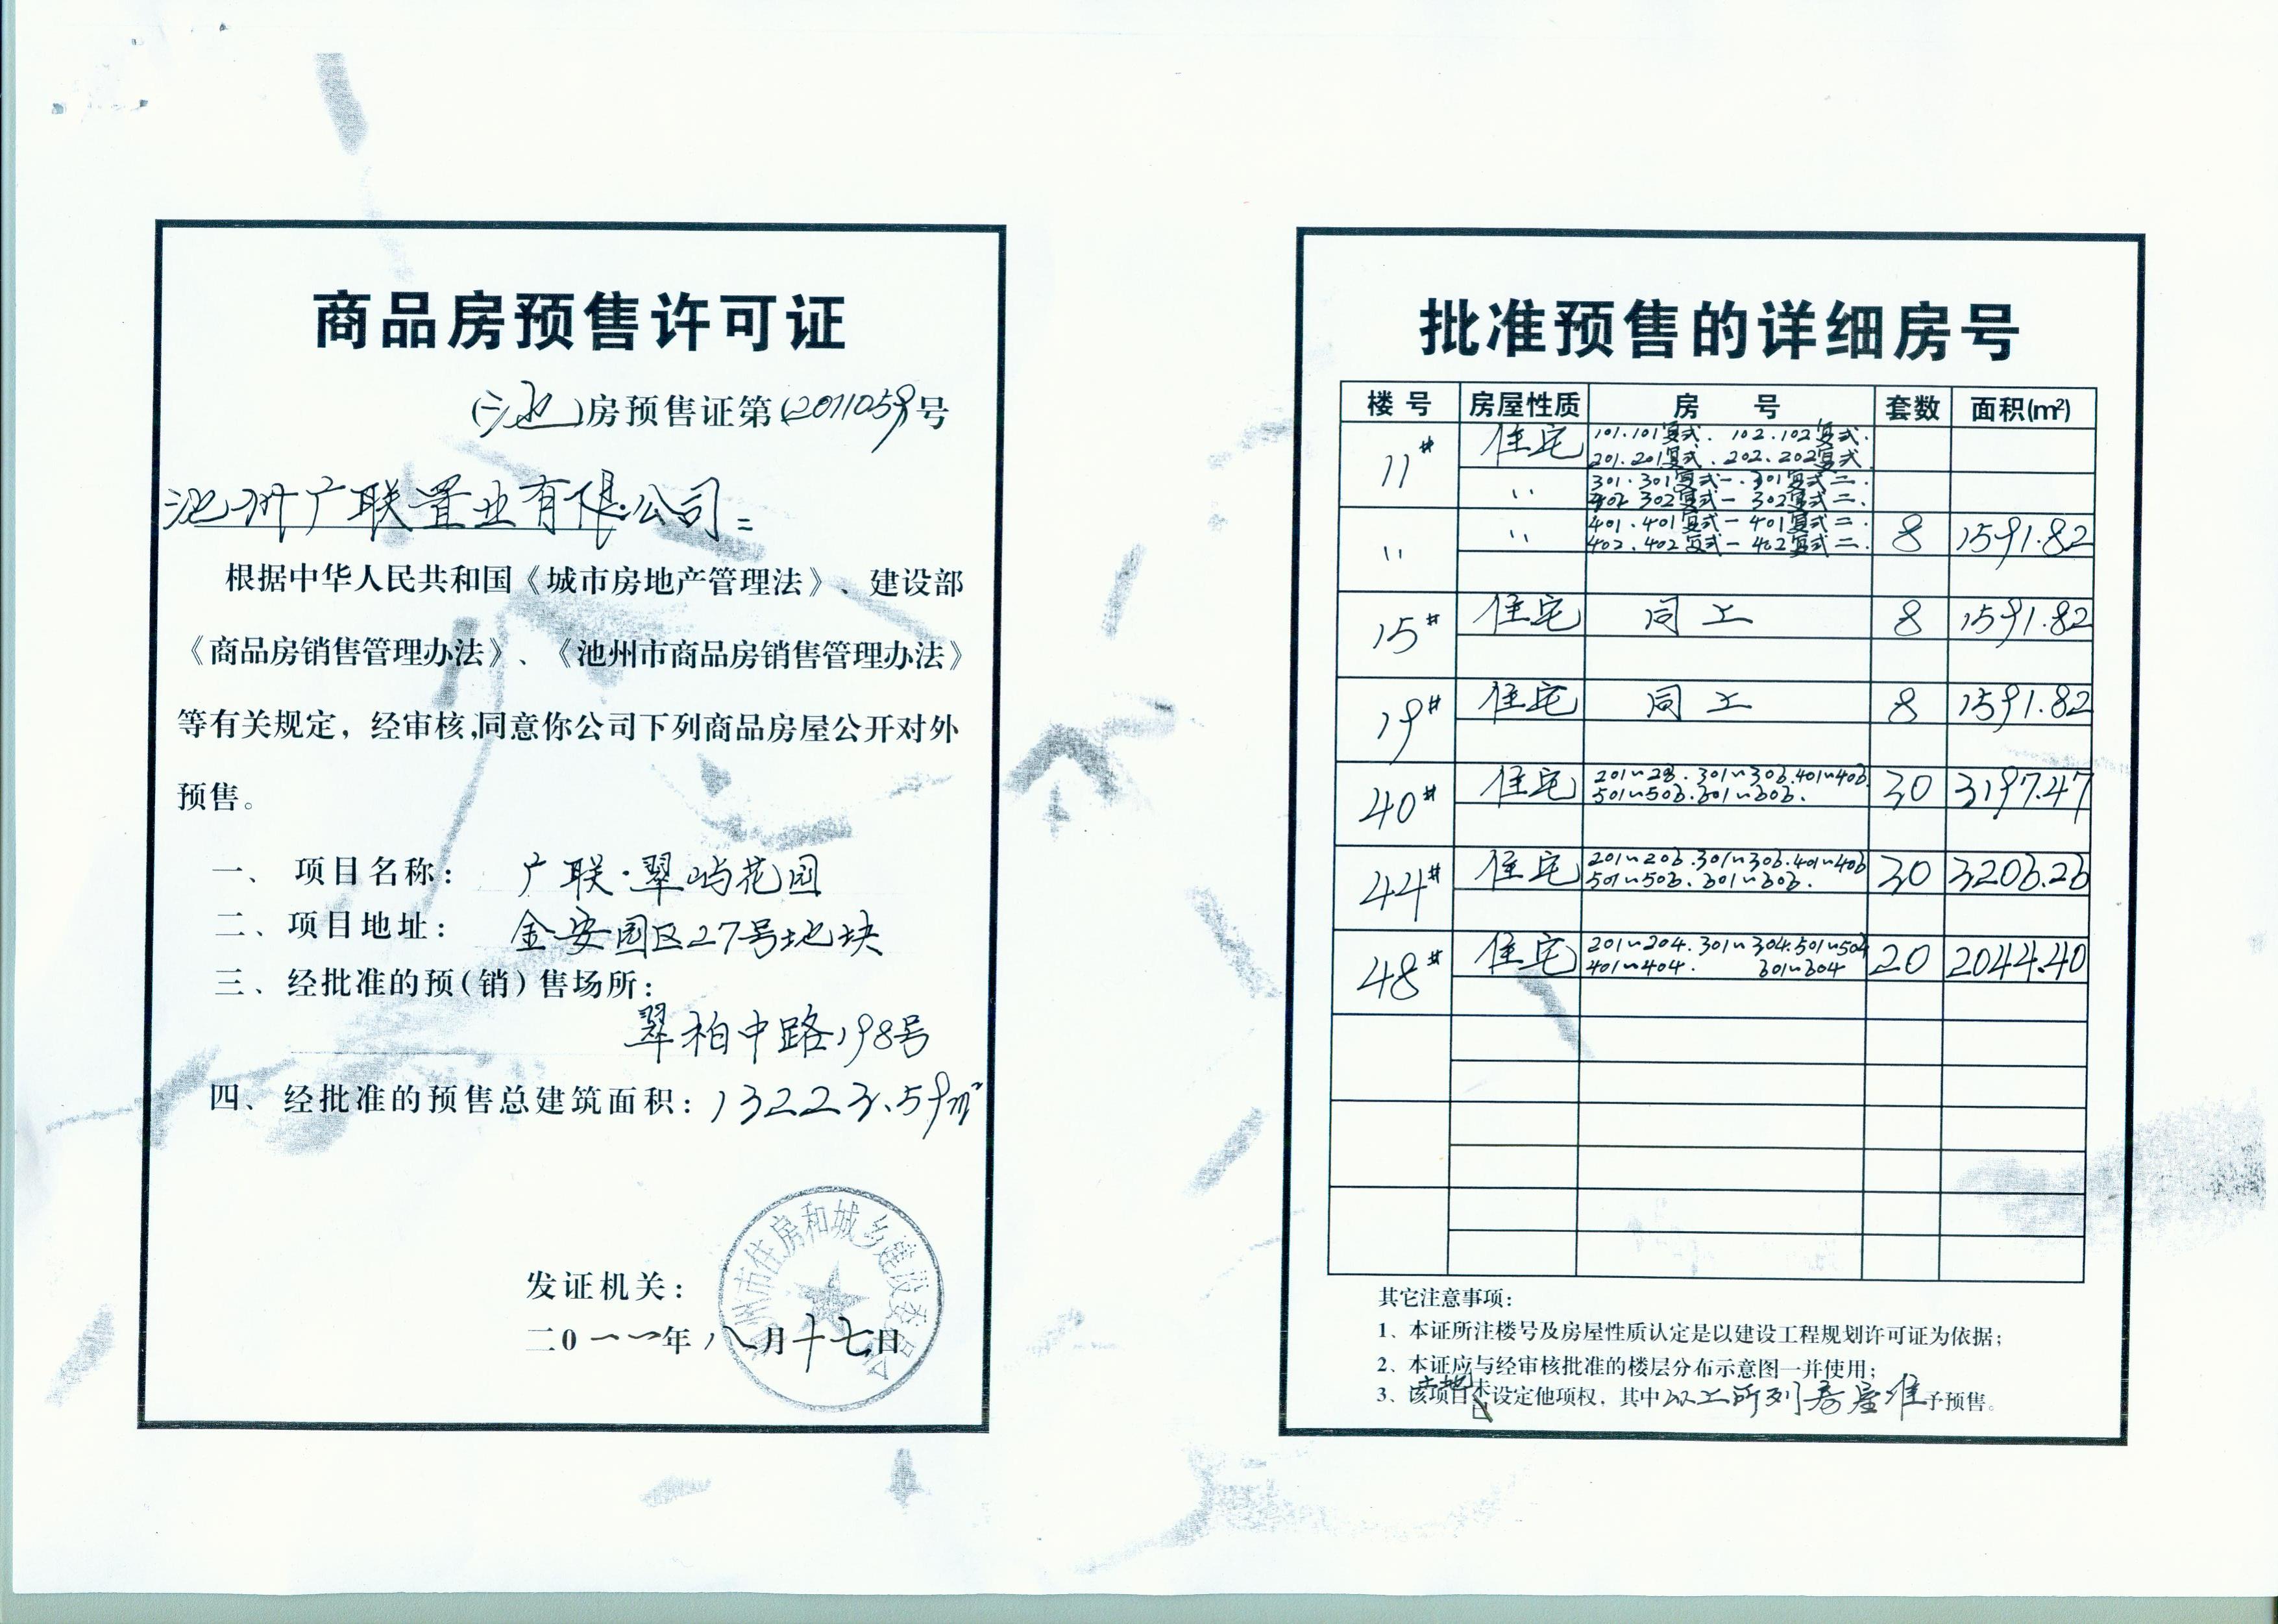 商品房预售许可证
(池)房预售证第(2011059号
池州广联置业有限公司:
根据中华人民共和国《城市房地产管理法》、建设部
《商品房销售管理办法》、《池州市商品房销售管理办法》
等有关规定，经审核,同意你公司下列商品房屋公开对外
预售。
一、项目名称: 广联·翠屿花园
二、项目地址: 金安园区27号地块
三、经批准的预(销)售场所:
翠柏中路198号
四、经批准的预售总建筑面积: 13223.59m²
发证机关:
二0一一年八月十七日
池州市住房和城乡建设委员会
批准预售的详细房号
楼号 房屋性质 房号 套数 面积(m²)
11# 住宅 101.101复式. 102.102复式.
201.201复式. 202.202复式
〃 301.301复式一.301复式二.
302复式一 302复式二.
〃 〃 401.401复式一 401复式二. 8 1591.82
402.402复式一 402复式二.
15# 住宅 同上 8 1591.82
19# 住宅 同上 8 1591.82
40# 住宅 301~306.401~406. 30 3197.47
501~506.601~606.
44# 住宅 201~206.301~306.401~406 30 3206.26
501~506.601~606.
48# 住宅 201~204.301~304.501~504 20 2044.40
401~404. 601~604
其它注意事项:
1、本证所注楼号及房屋性质认定是以建设工程规划许可证为依据;
2、本证应与经审核批准的楼层分布示意图一并使用;
3、该项目土地未设定他项权，其中以上所列房屋准予预售。